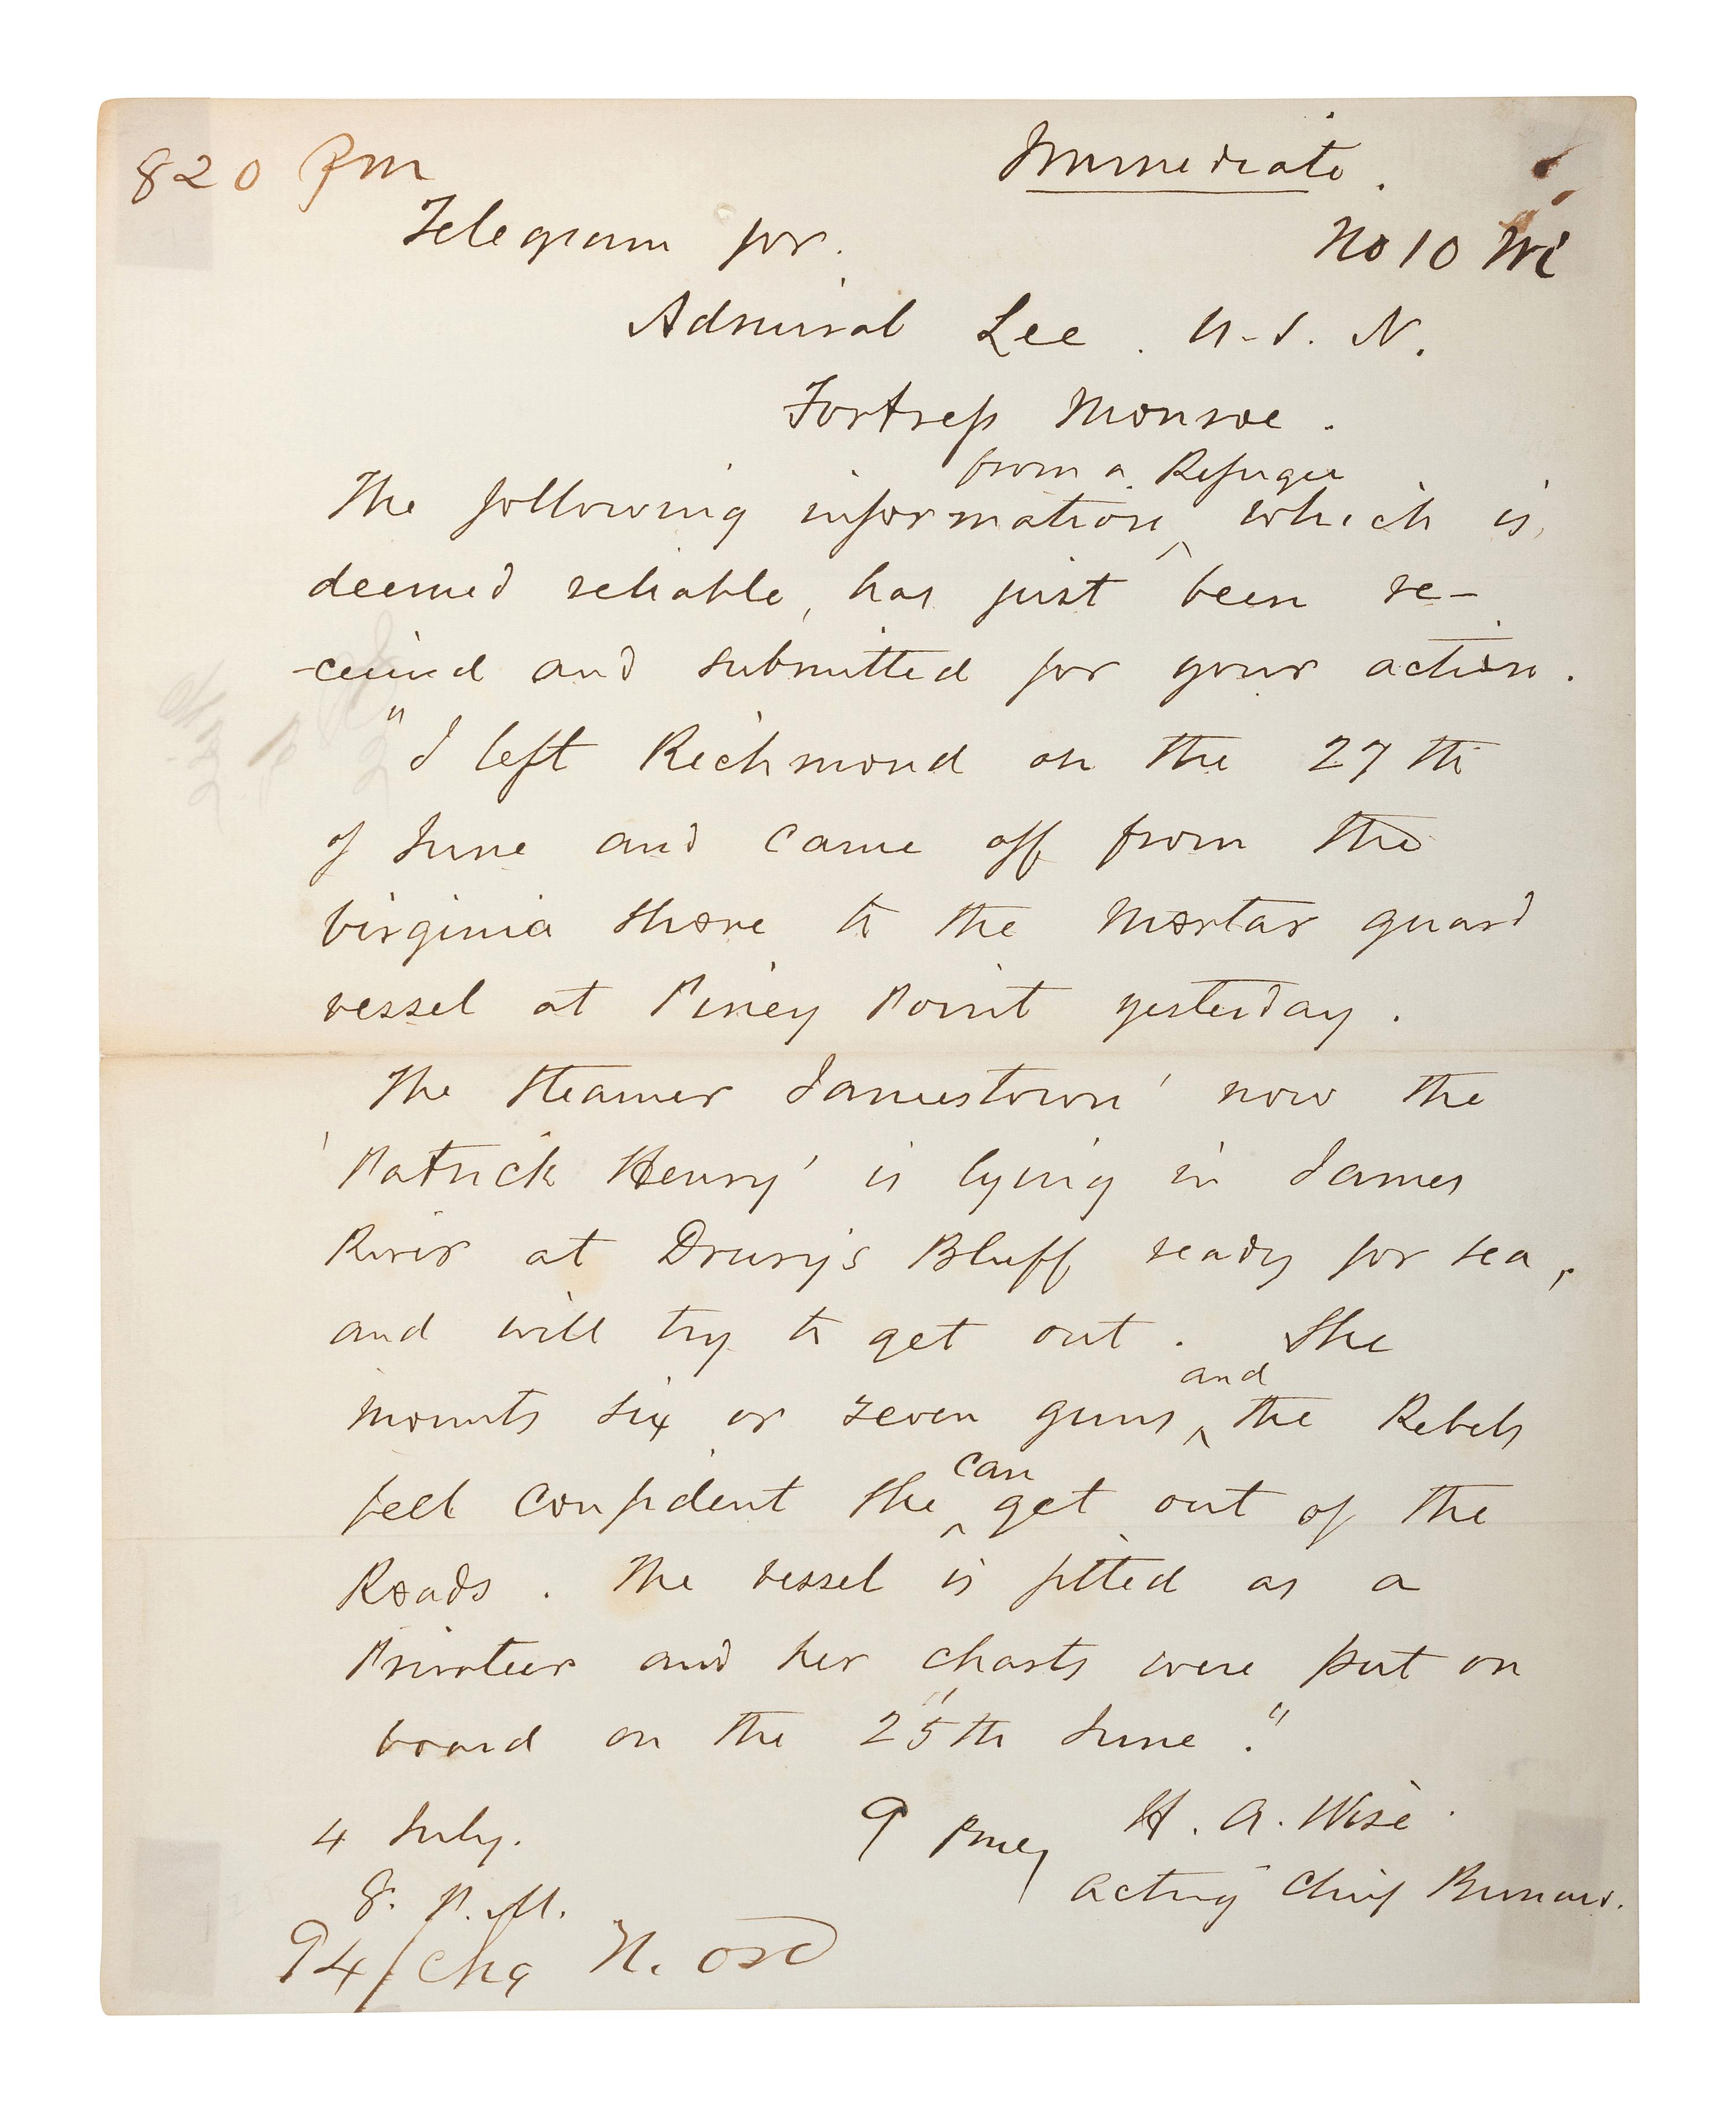 820 Pm
Immediate.
Telegram for.
No 10 Wi
Admiral Lee. U.S.N.
Fortress Monroe.
from a Refugee
The following information ^ which is
deemed reliable, has just been re-
-ceived and submitted for your action.
"I left Richmond on the 27th
of June and came off from the
Virginia shore to the Mortar guard
vessel at Piney Point yesterday.
The Steamer Jamestown' now the
'Patrick Henry' is lying in James
River at Drury's Bluff ready for sea,
and will try to get out. She
and
mounts six or seven guns ^ the Rebels
can
feel confident she ^ get out of the
Roads. The vessel is fitted as a
Privateer and her charts were put on
board on the 25th June."
4 July.
8. P.M.
H. A. Wise
Acting Chief Bureau.
94/Chg N. ord